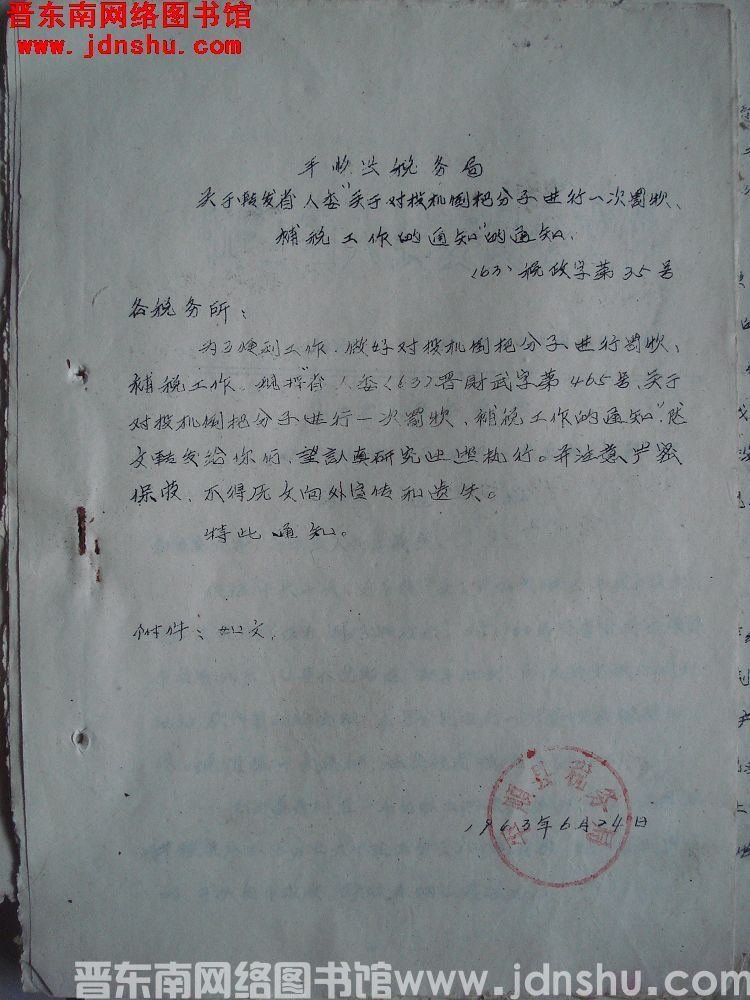 晋东南网络图书馆
www.jdnshu.com
平顺县税务局
关于转发省人委“关于对投机倒把分子进行一次罚款、
補税工作的通知”的通知.
(63)税政字第35号
各税务所：
为了便利工作.做好对投机倒把分子进行罚款、
補税工作.现将“省人委(63)晋财武字第465号,关于
对投机倒把分子进行一次罚款、補税工作的通知”,
文转发给你们,望认真研究并注意严密
不得原文向外宣传和遗失。
特此通知。
附件：如文.
平顺县税务局
1963年6月24日
晋东南网络图书馆www.jdnshu.com